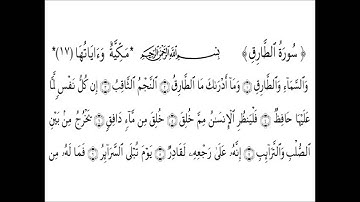 ﴿ سُورَةُ ٱلطَّارِقِ ﴾ بِسْمِ ٱللَّهِ ٱلرَّحْمَٰنِ ٱلرَّحِيمِ *مَكِّيَّةٌ وَءَايَاتُهَا (١٧)*
وَٱلسَّمَآءِ وَٱلطَّارِقِ ۝ وَمَآ أَدْرَىٰكَ مَا ٱلطَّارِقُ ۝ ٱلنَّجْمُ ٱلثَّاقِبُ ۝ إِن كُلُّ نَفْسٍ لَّمَّا
عَلَيْهَا حَافِظٌ ۝ فَلْيَنظُرِ ٱلْإِنسَٰنُ مِمَّ خُلِقَ ۝ خُلِقَ مِن مَّآءٍ دَافِقٍ ۝ يَخْرُجُ مِنۢ بَيْنِ
ٱلصُّلْبِ وَٱلتَّرَآئِبِ ۝ إِنَّهُۥ عَلَىٰ رَجْعِهِۦ لَقَادِرٌ ۝ يَوْمَ تُبْلَى ٱلسَّرَآئِرُ ۝ فَمَا لَهُۥ مِن